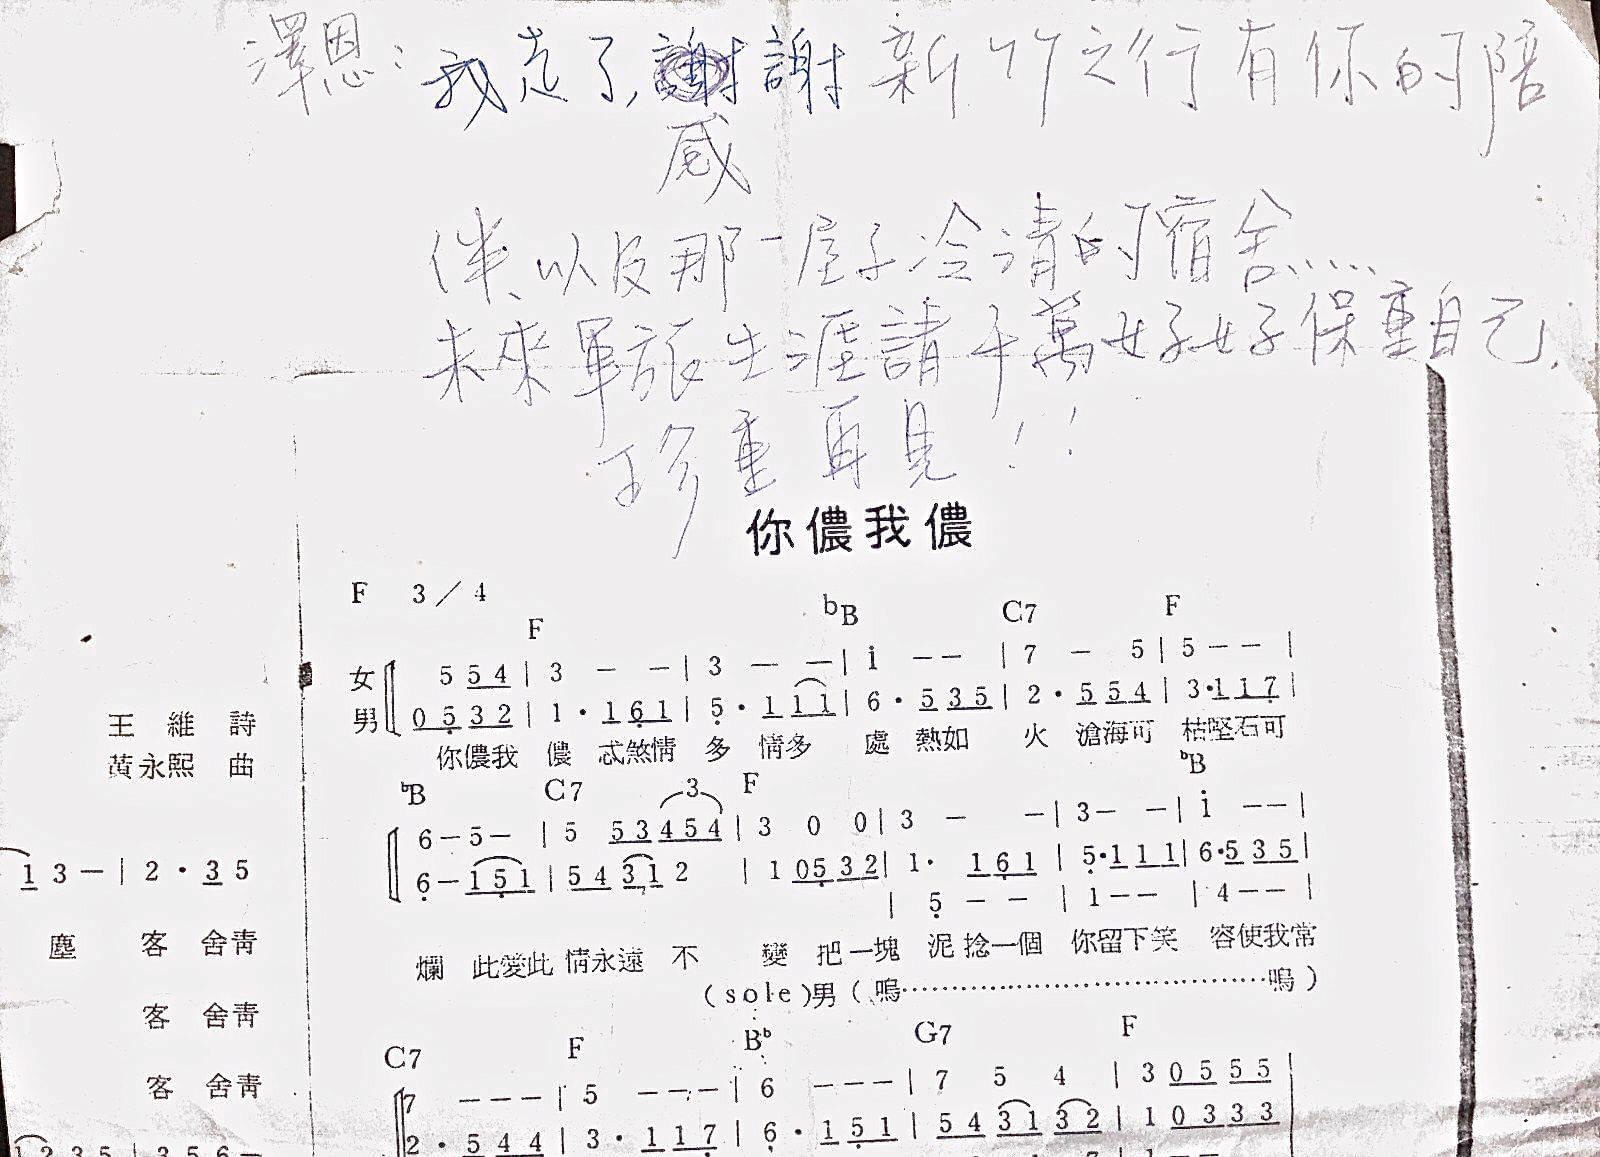 澤恩：我走了，謝謝新竹之行有你的陪
感
伴、以及那一屋子冷清的宿舍......
未來軍旅生涯請千萬好好保重自己.
珍重再見！！
你儂我儂
F 3／4
F bB C7 F
女 5 5 4 | 3 － －| 3 － －| i －－ | 7 － 5 | 5 －－ |
男 0 5 3 2 | 1 · 1 6 1 | 5 · 1 1 1 | 6 · 5 3 5 | 2 · 5 5 4 | 3·1 1 7 |
你儂我 儂 忒煞情 多 情多 處 熱如 火 滄海可 枯堅石可
bB C7 3 F bB
6－5－ | 5 5 3 4 5 4 | 3 0 0 | 3 － －| 3－ －| i －－ |
6－1 5 1 | 5 4 3 1 2 | 1 0 5 3 2 | 1· 1 6 1 | 5·1 1 1 | 6·5 3 5 |
| 5 － － | 1－－ | 4－－ |
爛 此愛此 情永遠 不 變 把一塊 泥 捻一個 你留下笑 容使我常
(sole)男（嗚⋯⋯⋯⋯⋯⋯⋯⋯⋯⋯⋯⋯嗚）
C7 F Bb G7 F
7 －－－ | 5 －－－ | 6 －－－ | 7 5 4 | 3 0 5 5 5
2 · 5 4 4 | 3 · 1 1 7 | 6 · 1 5 1 | 5 4 3 1 3 2 | 1 0 3 3 3
王維詩
黃永熙 曲
1 3－| 2 · 3 5
塵 客 舍青
客 舍青
客 舍青
1 2 3 5 | 3 5 6－